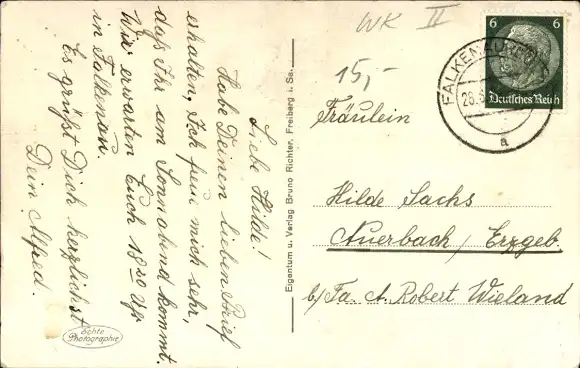 Liebe Hilde!
Habe Deinen lieben Brief
erhalten, Ich freu mich sehr,
daß Ihr am Sonnabend kommt.
Wir erwarten Euch 18²⁰ Uhr
in Falkenau.
Es grüßt Dich herzlichst
Dein Alfred.
Echte
Photographie
Eigentum u. Verlag Bruno Richter, Freiberg i. Sa.
WK II
15,-
6 6
Deutsches Reich
FALKENAU
28.
a
Fräulein
Hilde Sachs
Auerbach / Erzgeb.
b/ Fa. A. Robert Wieland